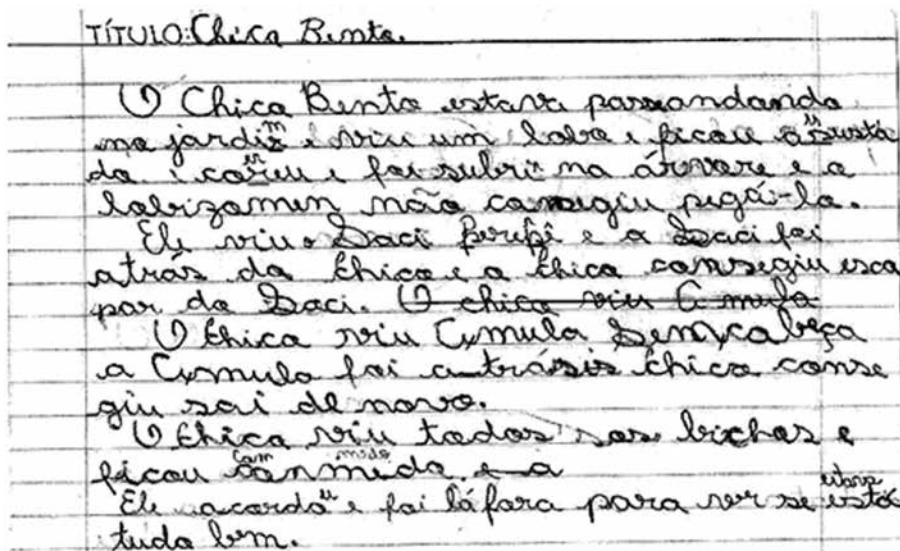 TÍTULO: Chico Bento.
O Chico Bento estava passeandando
no jardim e viu um lobo e ficou asustá
do e coreu e foi subri na árvore e o
lobizomen não consegiu pegá-lo.
Ele viu o Saci Perepê e o Saci foi
atrás do Chico e o Chico consegiu esca
par do Saci. O chico viu C mula
O Chico viu C, mula Sem, cabeça
a C, mula foi atrás is chico conse
giu sai de novo.
O Chico viu todos sos bichos e
com medo
ficou con mido e a
estava
Ele acordou e foi lá fora para ver se está
tudo bem.